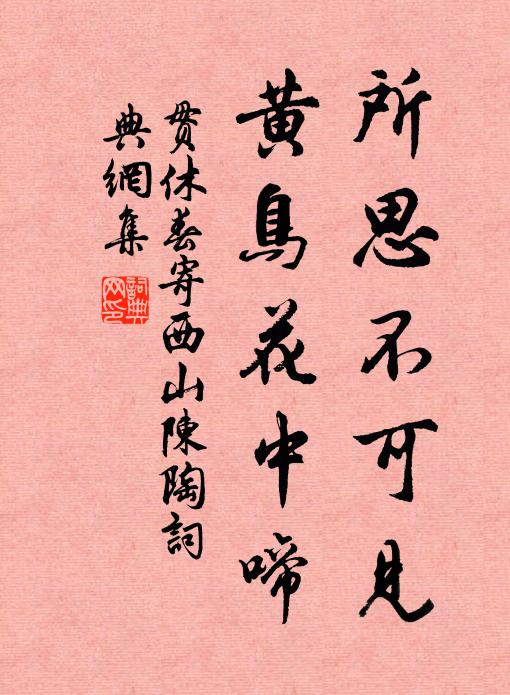 所思不可見
黄鳥花中啼
贯休春寄西山陳陶詞
典網集
詞典
网印